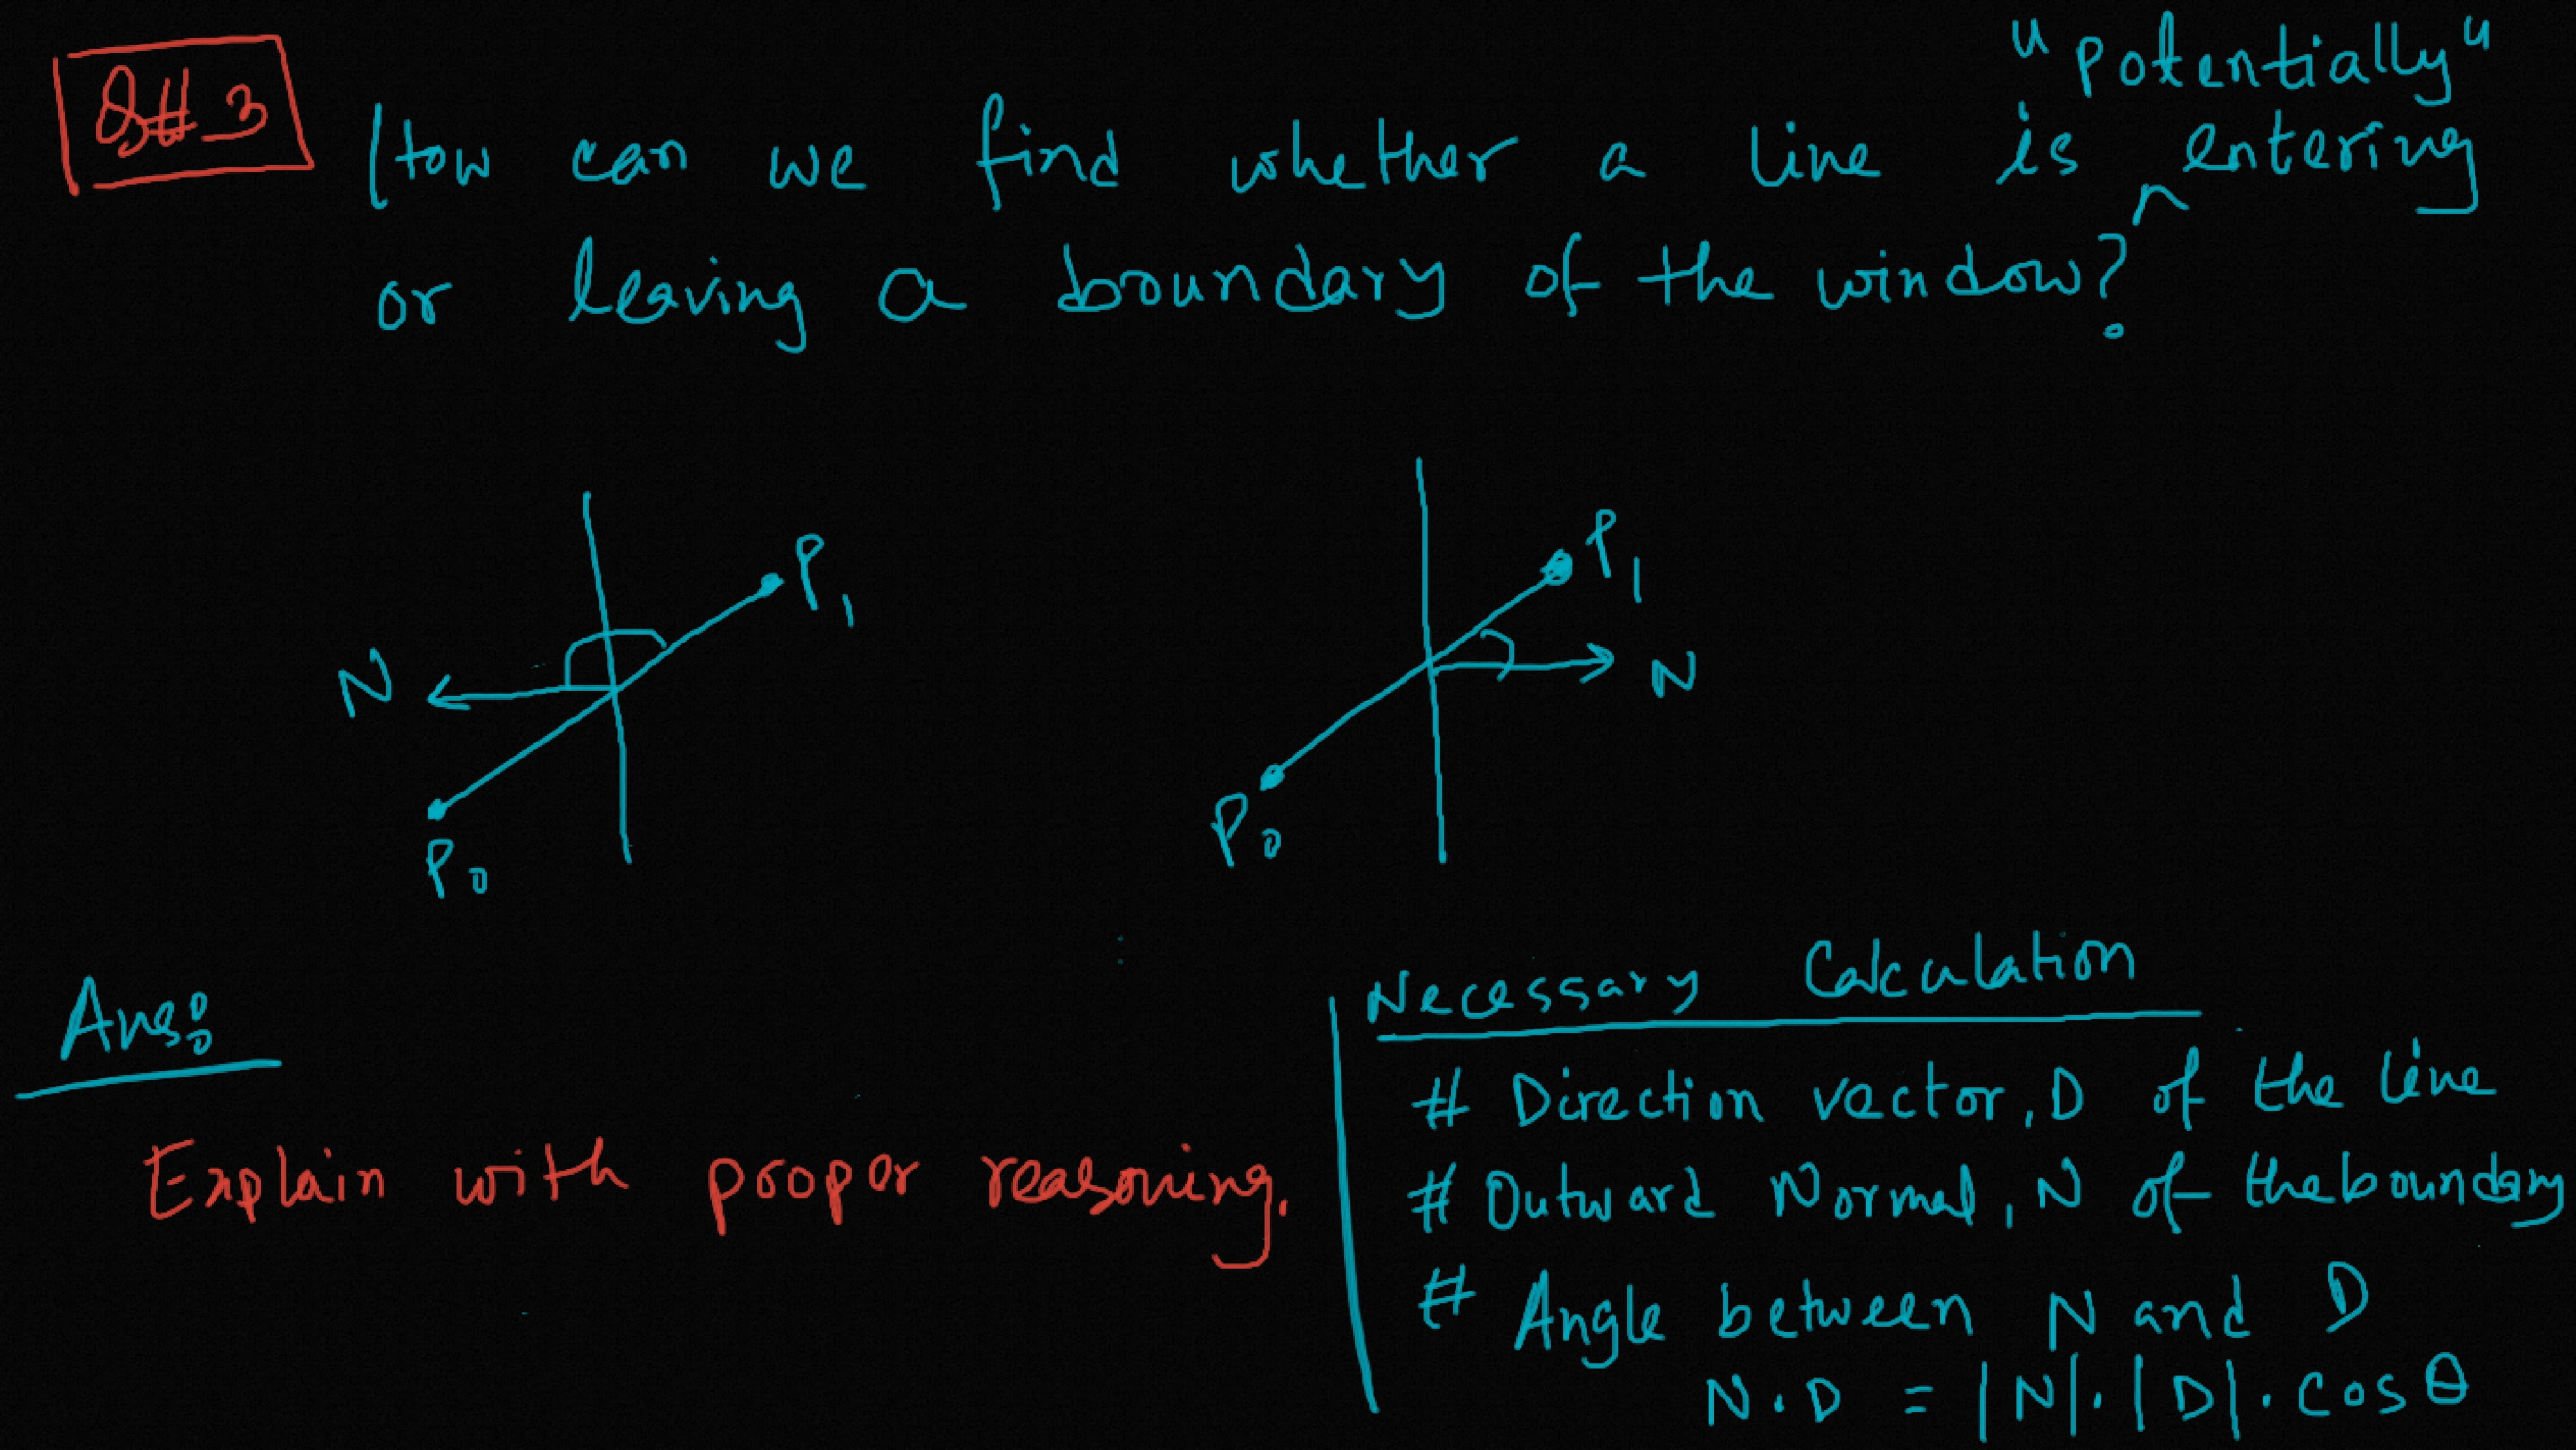 Q# 3
"Potentially"
How can we find whether a line is ^ entering
or leaving a boundary of the window?
P1
N
P0
P1
N
P0
Ans:
Explain with proper reasoning.
Necessary Calculation
# Direction vector, D of the line
# Outward Normal, N of the boundary
# Angle between N and D
N.D = |N|.|D|.cos θ